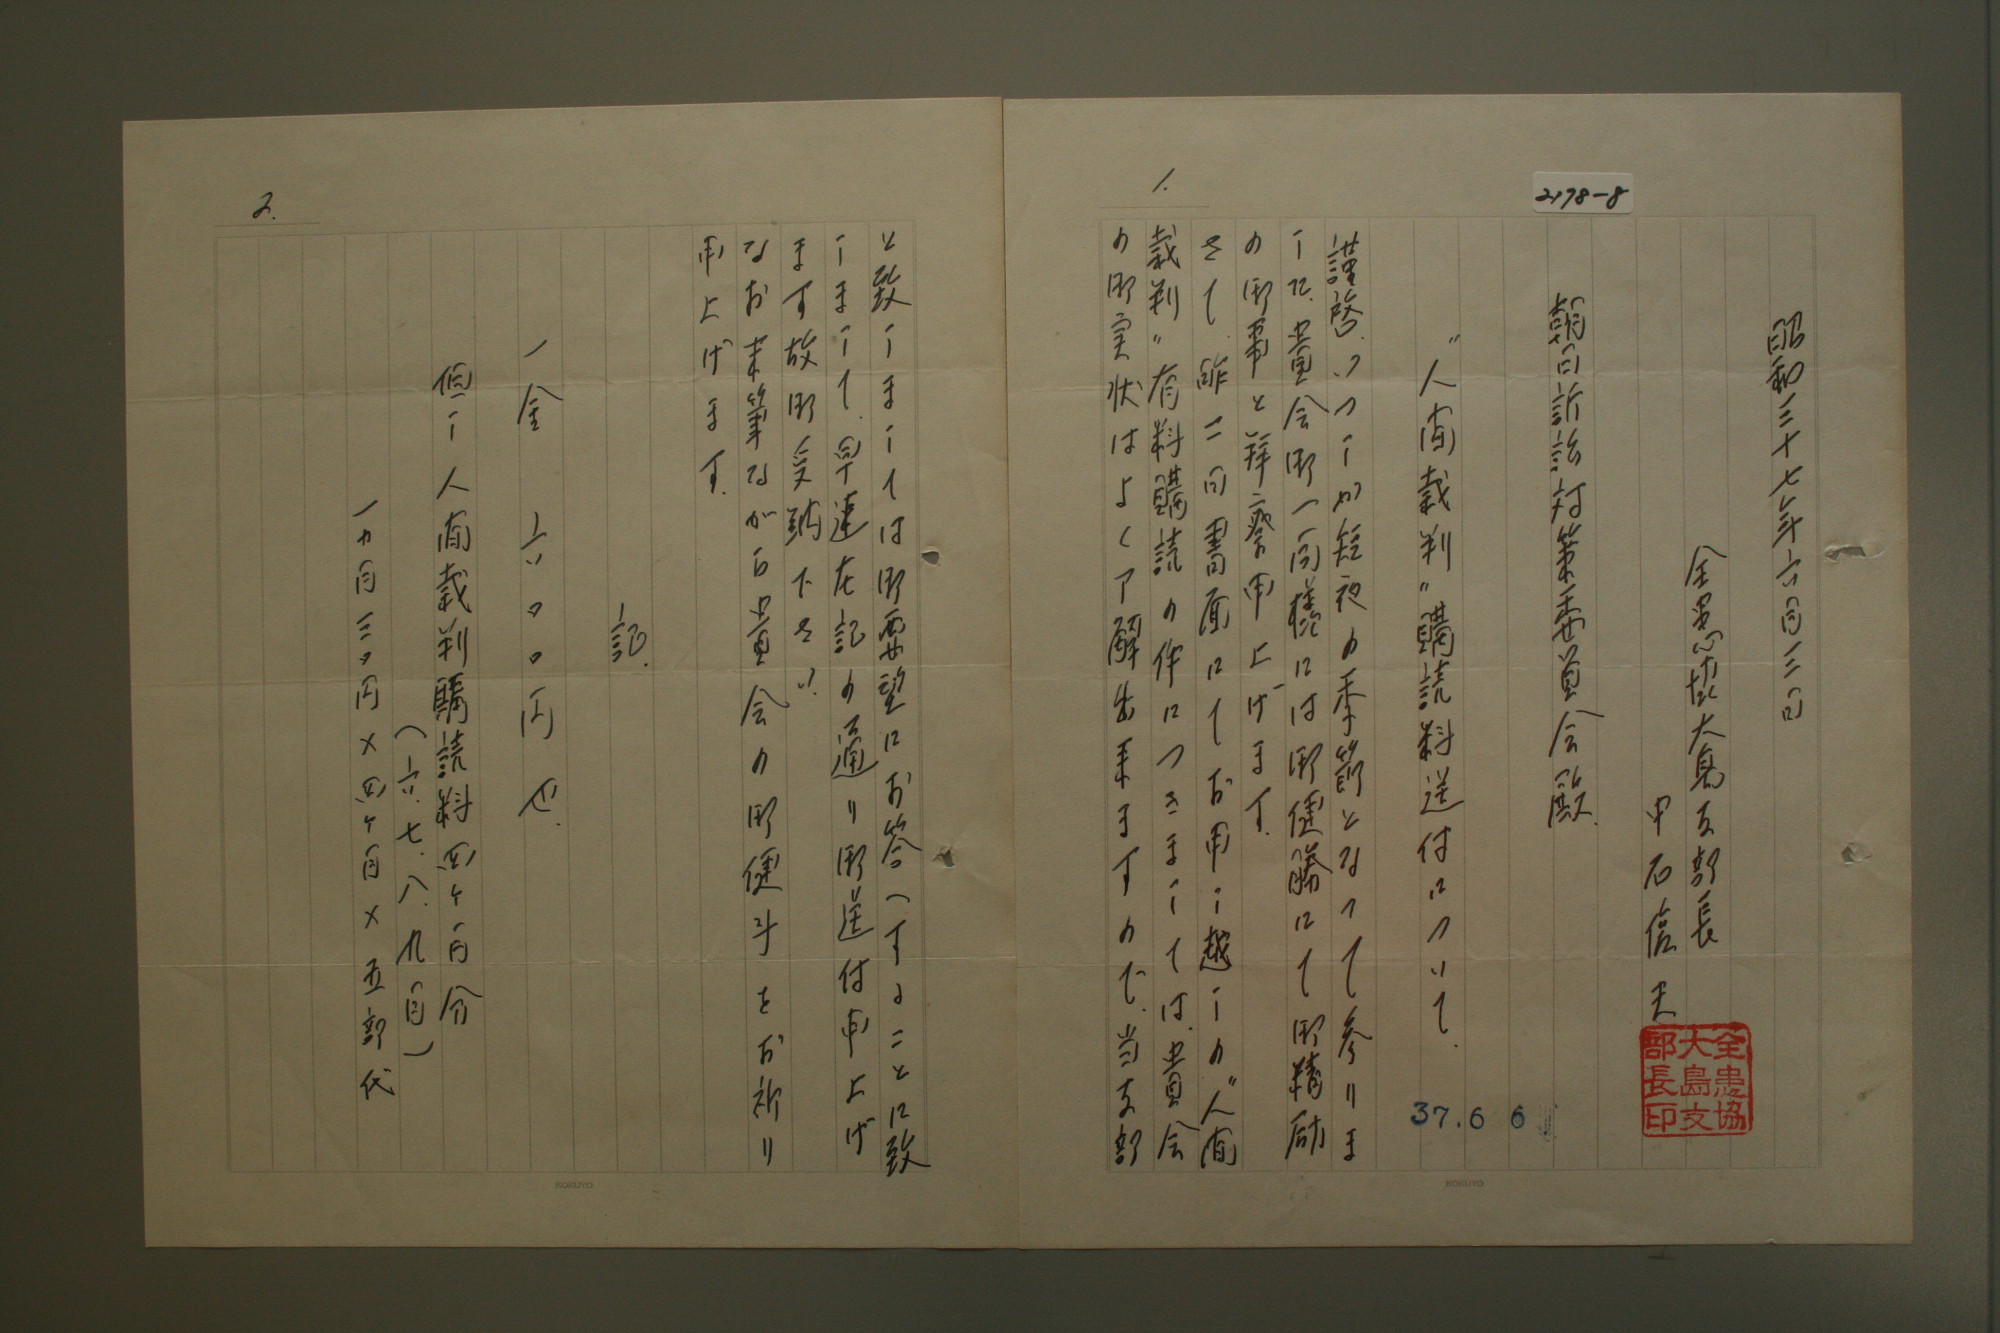 2178-8
1.
昭和三十七年六月三日
全患協大島支部長
中石信夫
全患協大島支部長印
朝日訴訟対策委員会殿.
"人間裁判"購読料送付について.
37.6 6
謹啓.いつしか短夜の季節となって参りま
した.貴会御一同様には御健勝にて御精励
の御事と拝察申上げます.
さて.昨二日書面にてお申し越しの"人間
裁判"有料購読の件につきましては.貴会
の御実状はよく了解出来ますので.当支部
2.
と致しましては御要望にお答へすることに致
しまして.早速左記の通り御送付申上げ
ます故御受納下さい.
なお末筆ながら貴会の御健斗をお祈り
申上げます.
記.
一金 六〇〇円也.
但し人間裁判購読料四ヶ月分
(六.七.八.九月)
一ヵ月三〇円×四ヶ月×五部代
KOKUYO
KOKUYO